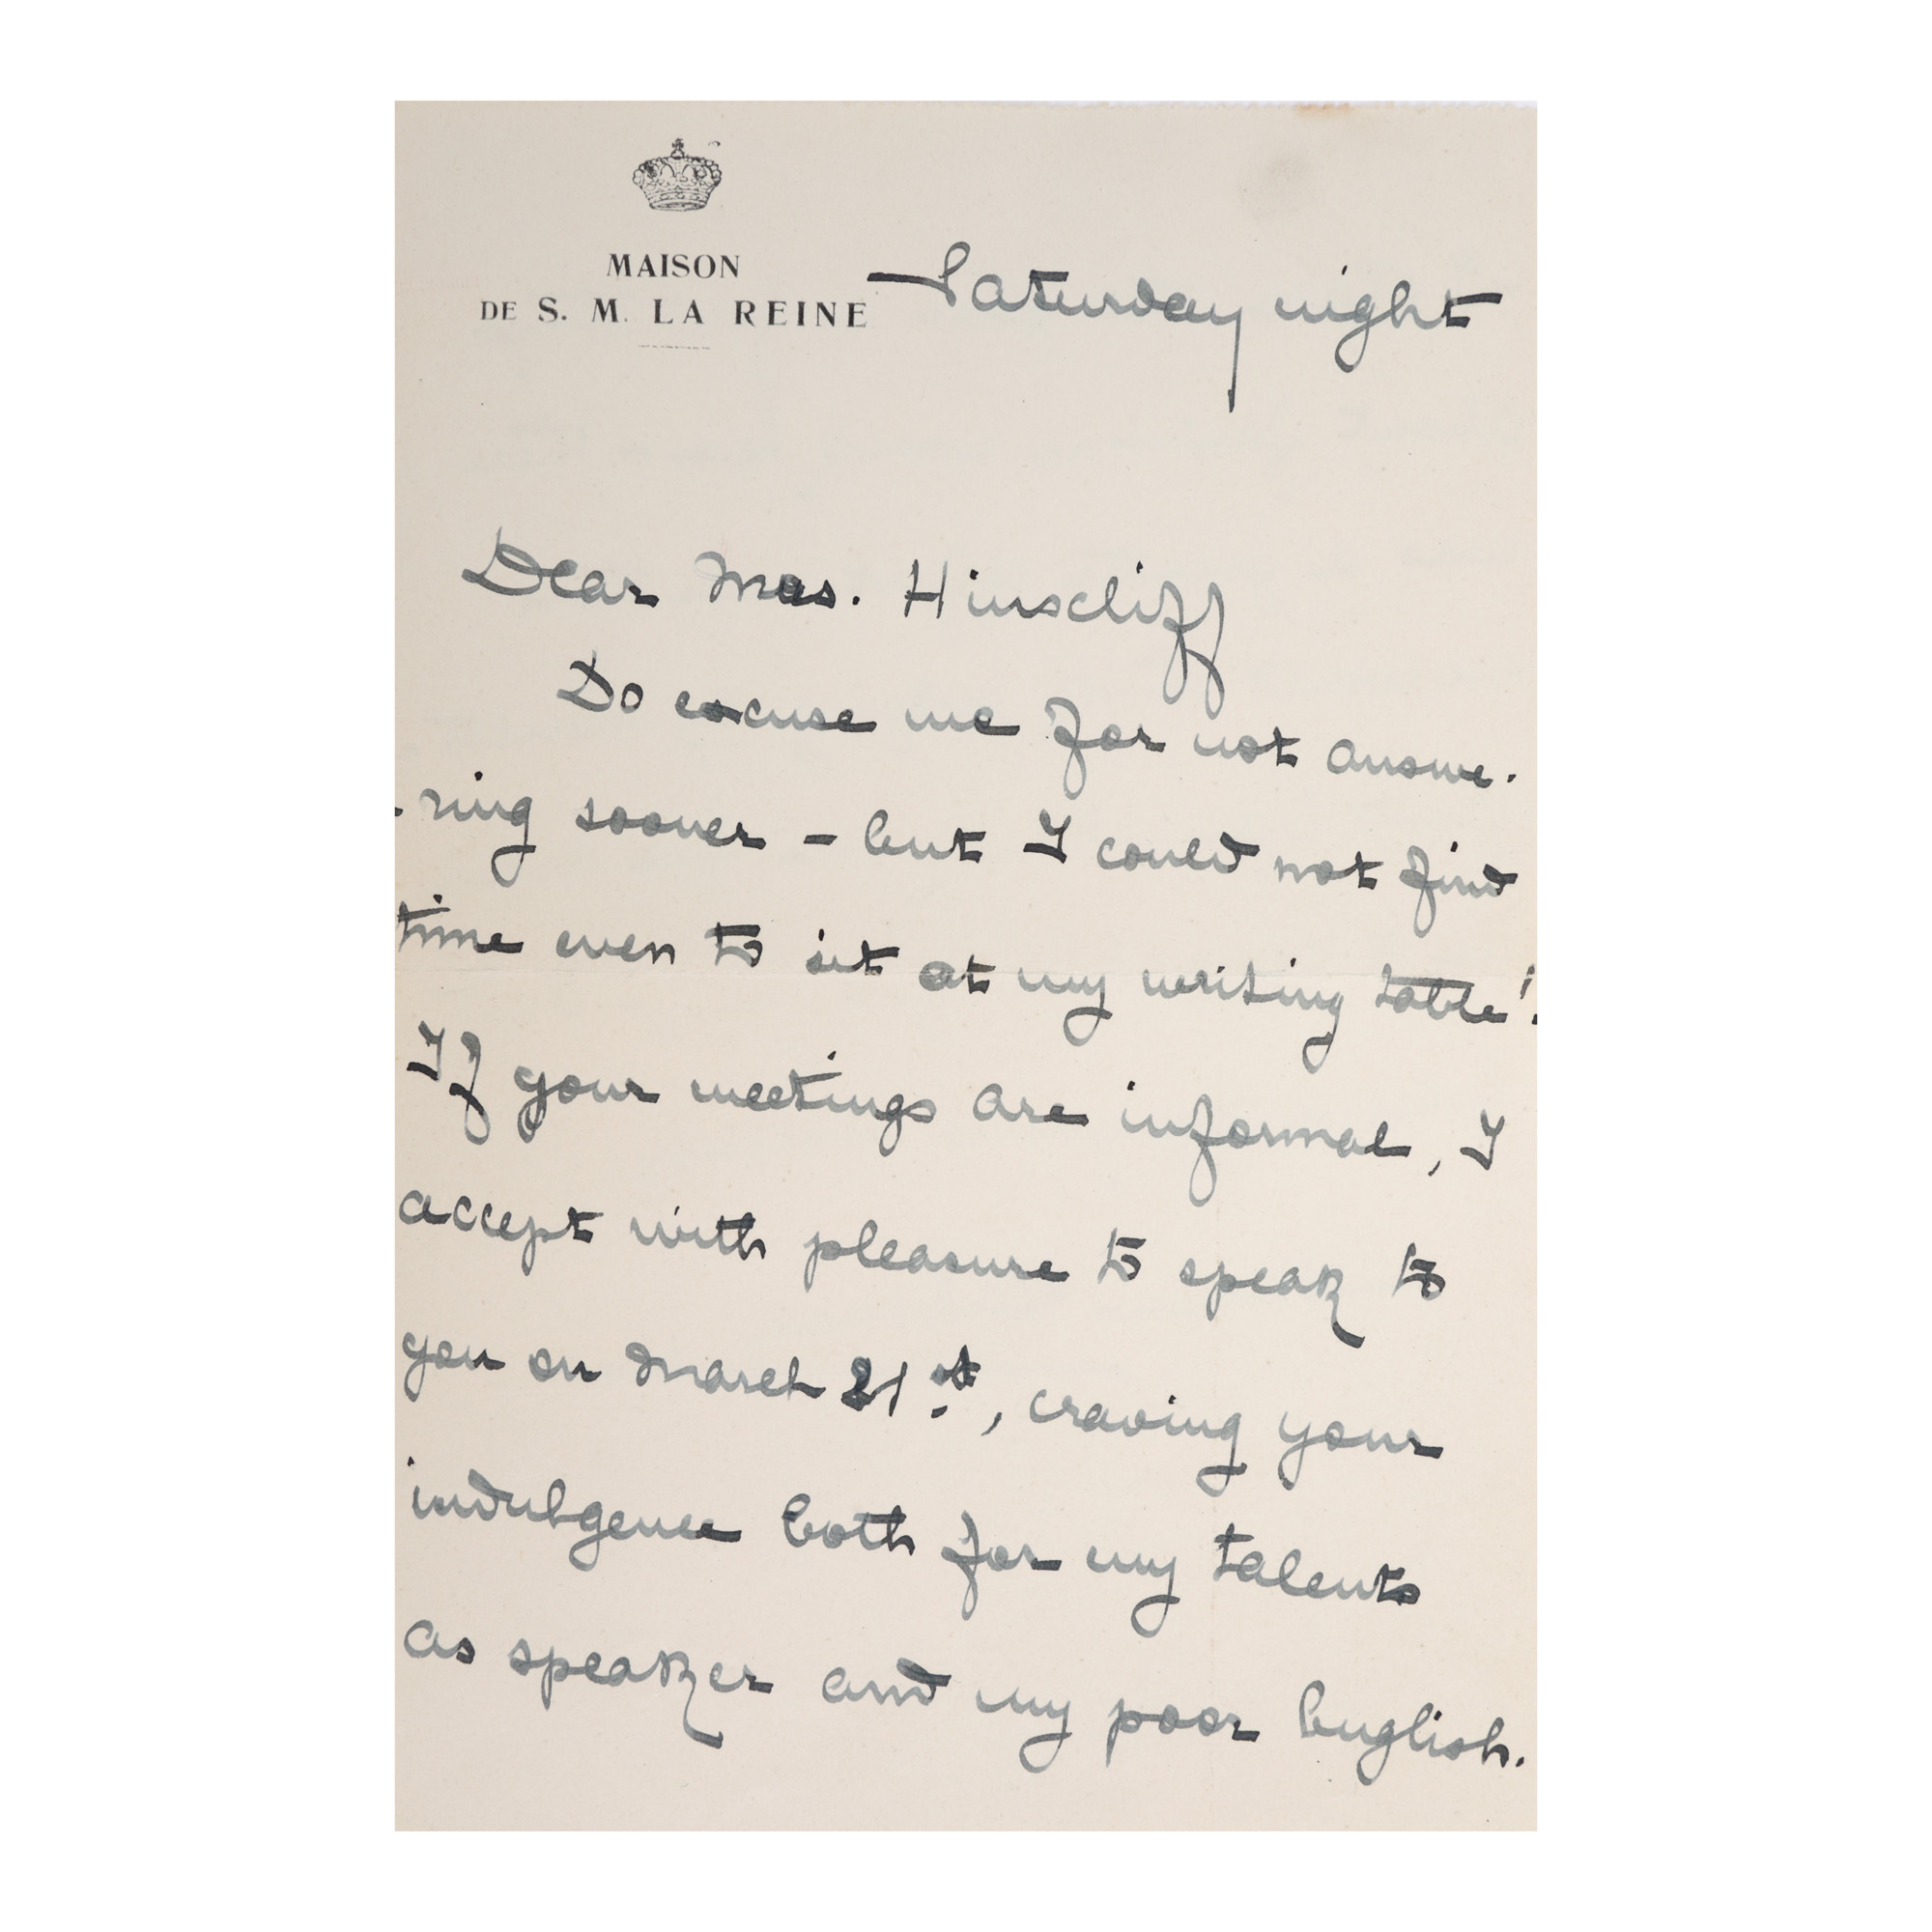 MAISON
DE S. M. LA REINE
Saturday night
Dear Mrs. Hinscliff
Do excuse me for not answe-
-ring sooner – but I could not find
time even to sit at my writing table!
If your meetings are informal, I
accept with pleasure to speak to
you on March 21st, craving your
indulgence both for my talents
as speaker and my poor English.